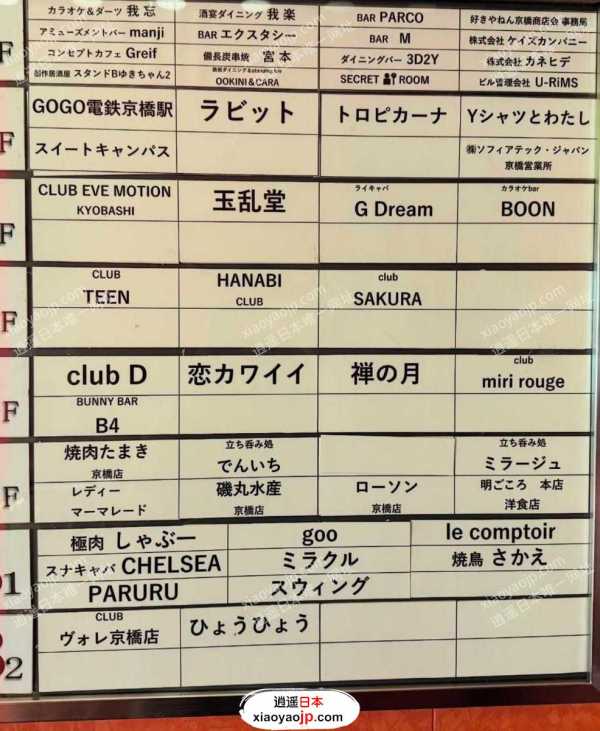 カラオケ&ダーツ 我忘
酒宴ダイニング 我楽
BAR PARCO
好きやねん京橋商店会 事務局
アミューズメントバー manji
BAR エクスタシー
BAR M
株式会社 ケイズカンパニー
コンセプトカフェ Greif
備長炭串焼 宮本
ダイニングバー 3D2Y
株式会社 カネヒデ
創作居酒屋 スタンドBゆきちゃん2
OOKINI&CARA
SECRET ROOM
ビル管理会社 U-RiMS
F
GOGO電鉄京橋駅
ラビット
トロピカーナ
Yシャツとわたし
スイートキャンパス
㈱ソフィアテック・ジャパン
京橋営業所
F
CLUB EVE MOTION
KYOBASHI
玉乱堂
ライキャバ
G Dream
カラオケbar
BOON
F
CLUB
TEEN
HANABI
CLUB
club
SAKURA
F
club D
恋カワイイ
禅の月
club
miri rouge
BUNNY BAR
B4
F
焼肉たまき
京橋店
立ち呑み処
でんいち
立ち呑み処
ミラージュ
レディー
マーマレード
磯丸水産
京橋店
ローソン
京橋店
明ごころ 本店
洋食店
F
極肉 しゃぶー
goo
le comptoir
スナキャバ CHELSEA
ミラクル
焼鳥 さかえ
PARURU
スウィング
1
CLUB
ヴォレ京橋店
ひょうひょう
2
逍遥日本
xiaoyaojp.com